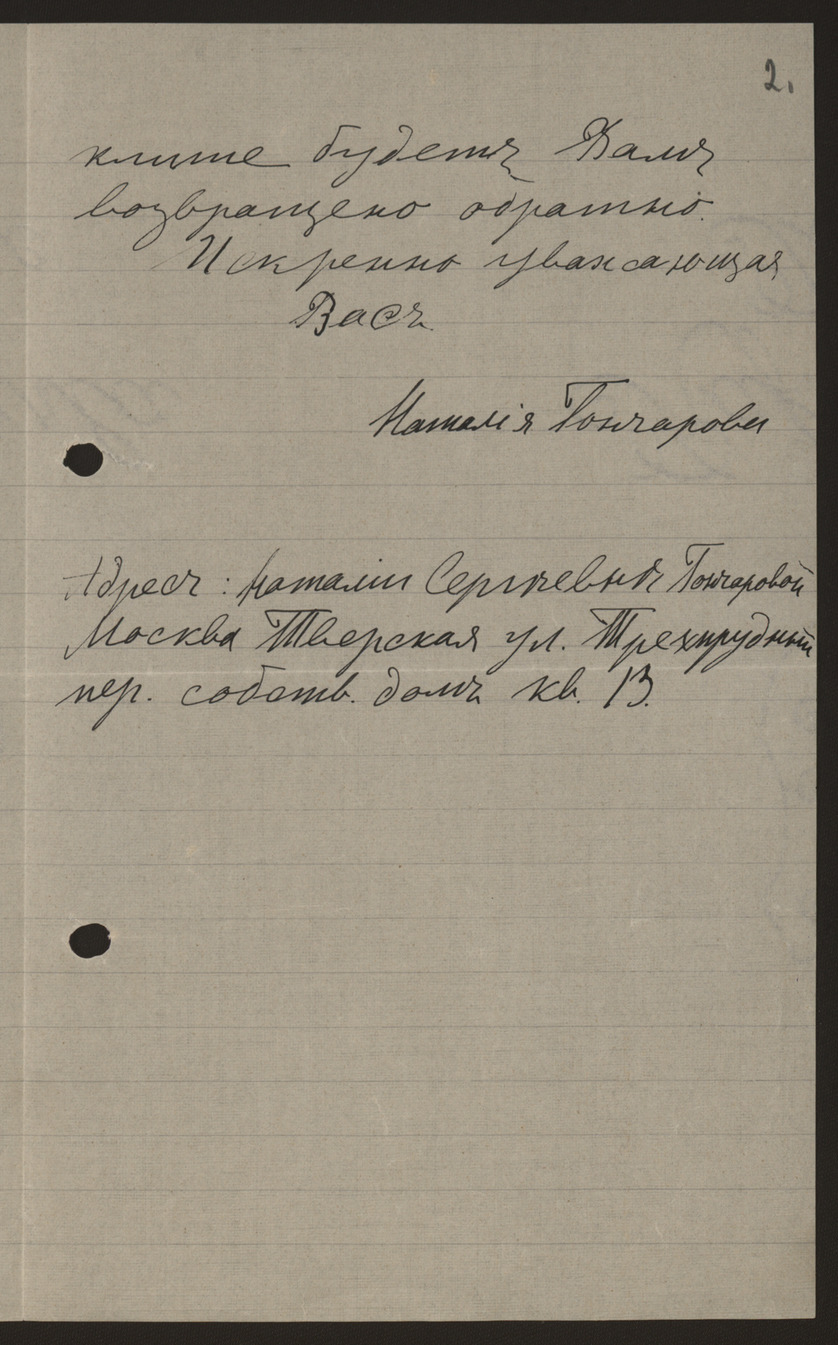 2.
клише будетъ Вамъ
возвращено обратно.
Искренно уважающая
Васъ.
Наталiя Гончарова
Адресъ: Наталiи Сергѣевнѣ Гончаровой
Москва Тверская ул. Трехпрудный
пер. собств. домъ кв. 13.